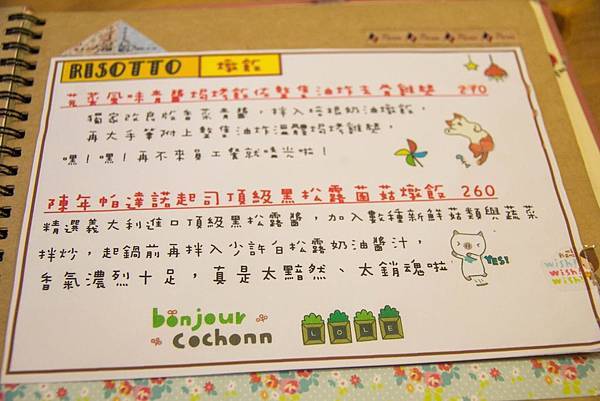 RISOTTO 燉飯
芫荽風味青醬焗烤飯佐整隻油炸去骨雞腿 270
獨家改良版香菜青醬，拌入培根奶油燉飯，
再大手筆附上整隻油炸溫體焗烤雞腿，
嘿！嘿！再不來員工餐就嗑光啦！
陳年帕達諾起司頂級黑松露菌菇燉飯 260
精選義大利進口頂級黑松露醬，加入數種新鮮菇類與蔬菜
拌炒，起鍋前再拌入少許白松露奶油醬汁，
香氣濃烈十足，真是太黯然、太銷魂啦
YES!
wish
wish
wish
bonjour
cochonn
LOLE